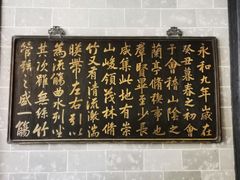 永和九年歲在
癸丑暮春之初會
于會稽山陰之
蘭亭脩稧事也
群賢畢至少長
咸集此地有崇
山峻領茂林脩
竹又有清流激湍
暎帶左右引以
為流觴曲水列坐
其次雖無絲竹
管弦之盛一觴